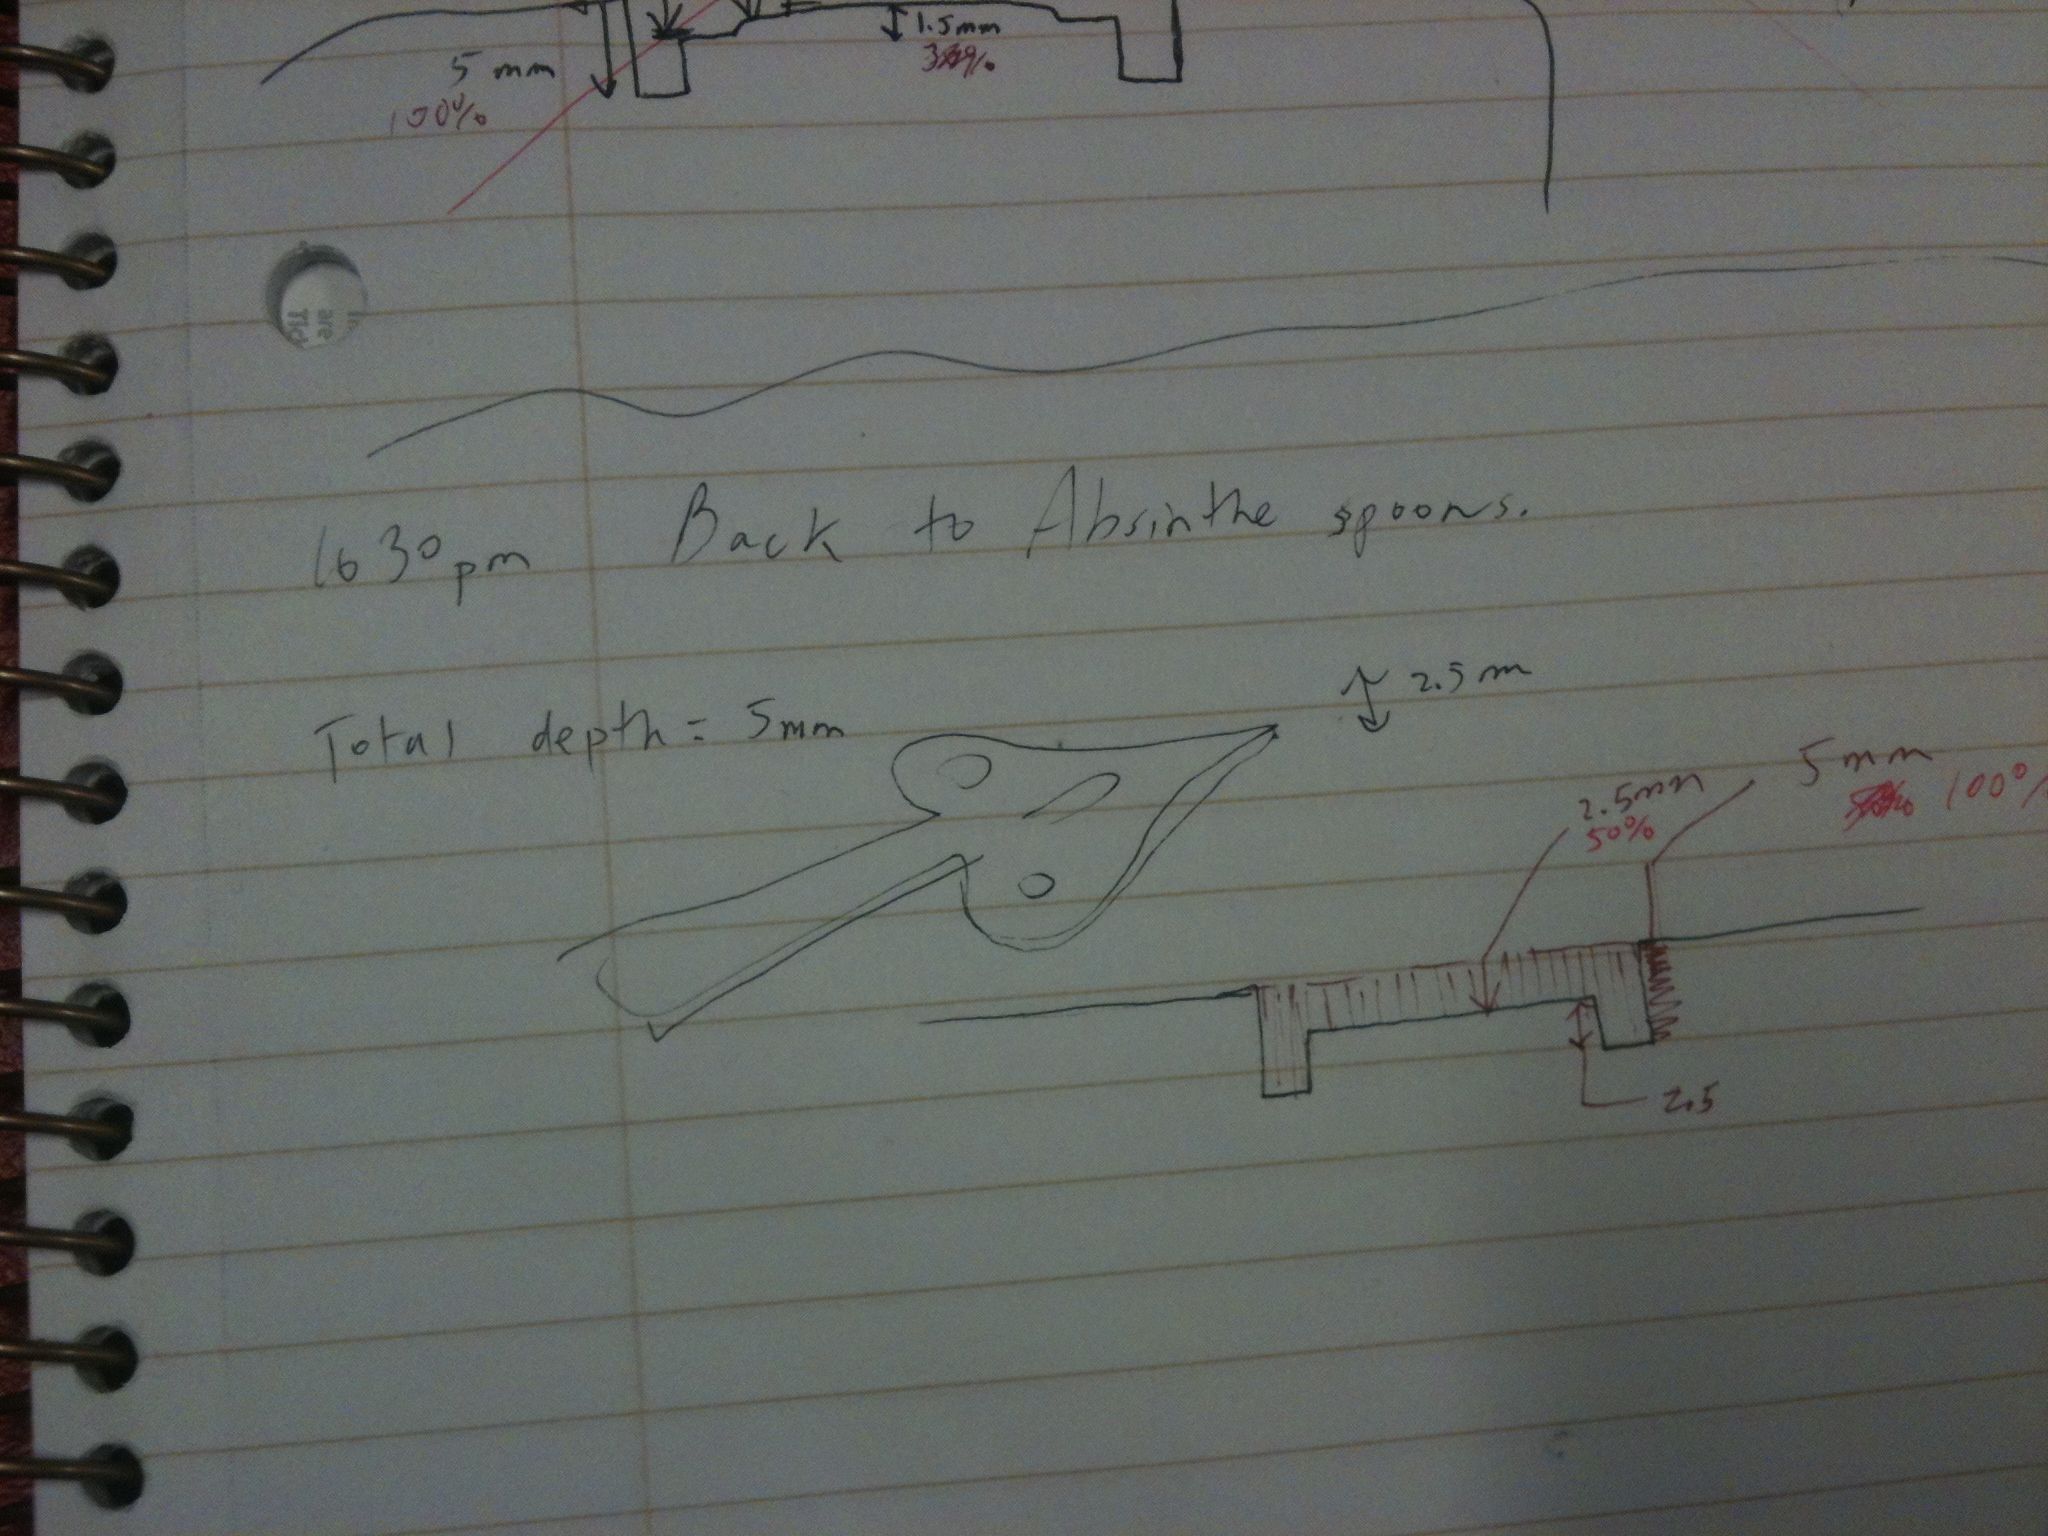 1.5mm
5 mm
100%
1630pm Back to Absinthe spoons.
2.5m
Total depth = 5mm
5mm
2.5mm
100%
50%
2.5